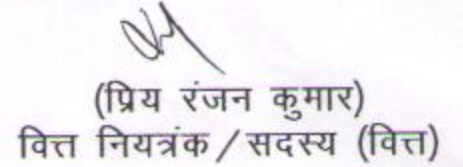 (प्रिय रंजन कुमार)
वित्त नियत्रंक/सदस्य (वित्त)